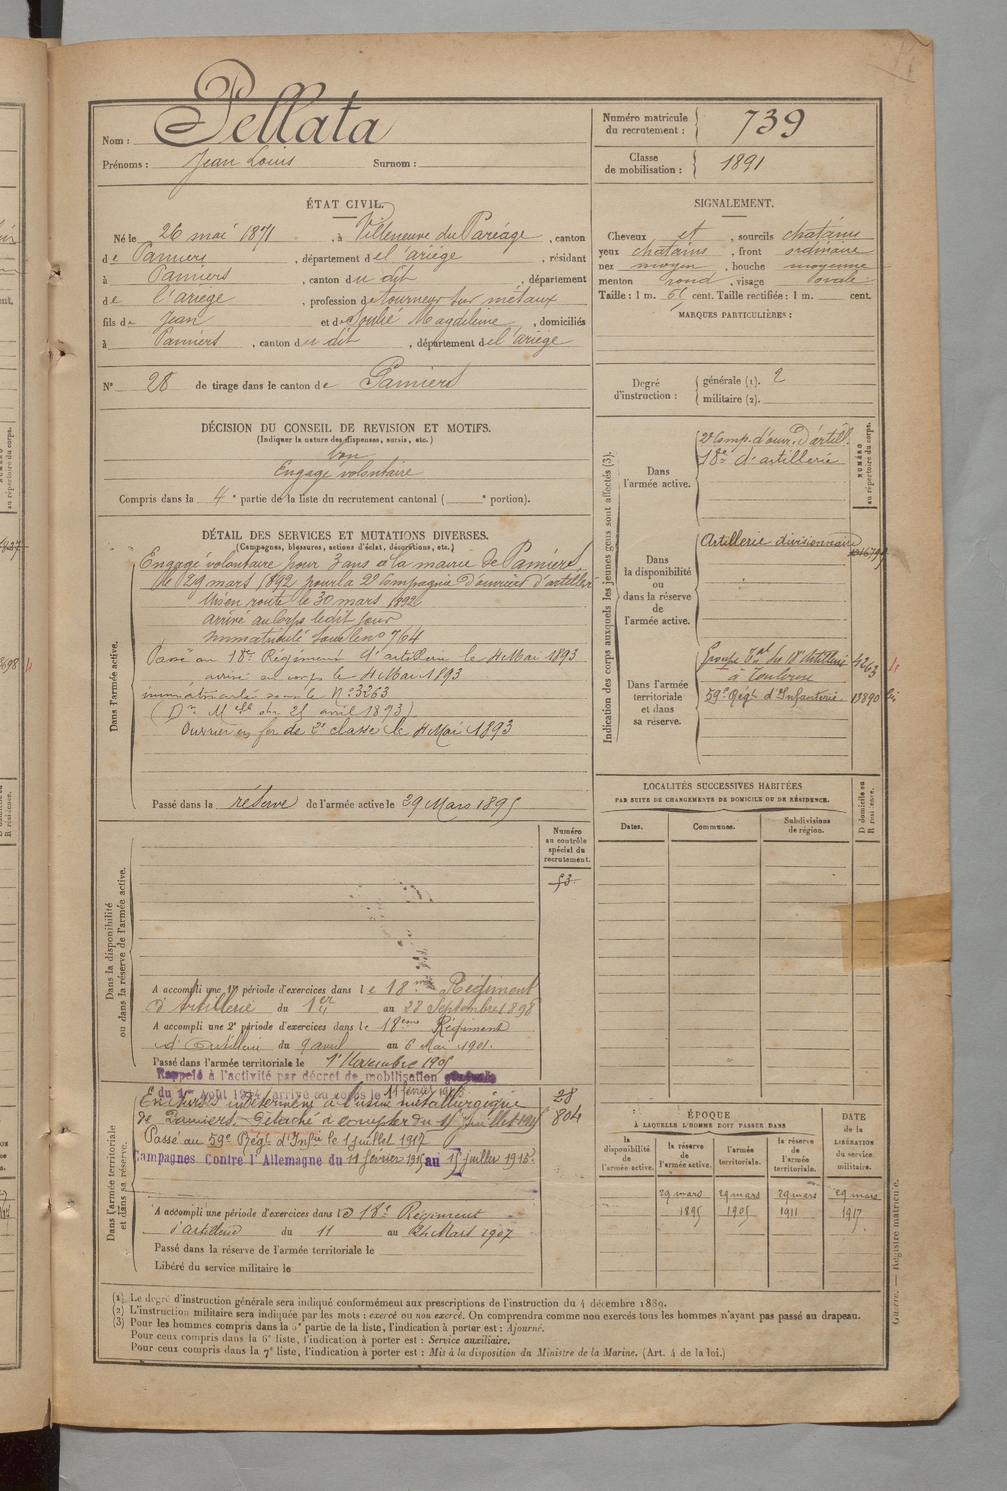 Nom : Pellata
Prénoms : Jean Louis Surnom :
Numéro matricule du recrutement : 739
Classe de mobilisation : 1891
ÉTAT CIVIL.
Né le 26 mai 1871, à Villeneuve du Paréage, canton
de Pamiers, département de l'ariège, résidant
à Pamiers, canton du dit, département
de l'ariège, profession de tourneur sur métaux
fils de Jean et de Soulié Magdeleine, domiciliés
à Pamiers, canton du dit, département de l'ariège
N° 28 de tirage dans le canton de Pamiers
SIGNALEMENT.
Cheveux et, sourcils chatains
yeux chatains, front ordinaire
nez moyen, bouche moyenne
menton rond, visage ovale
Taille : 1 m. 61 cent. Taille rectifiée : 1 m. cent.
MARQUES PARTICULIÈRES :
Degré d'instruction : générale (1). 2
militaire (2).
DÉCISION DU CONSEIL DE REVISION ET MOTIFS.
(Indiquer la nature des dispenses, sursis, etc.)
bon
Engagé volontaire
Compris dans la 4e partie de la liste du recrutement cantonal ( e portion).
DÉTAIL DES SERVICES ET MUTATIONS DIVERSES.
(Campagnes, blessures, actions d'éclat, décorations, etc.)
Dans l'armée active.
Engagé volontaire pour 3 ans à la mairie de Pamiers
le 29 mars 1892 pour la 2e Compagnie d'ouvriers d'artillerie
Mis en route le 30 mars 1892
arrivé au Corps le dit jour
Immatriculé sous le no 764
Passé au 18e Régiment d'artillerie le 4 Mai 1893
arrivé au corps le 4 Mai 1893
immatriculé sous le No 3263
(Don Mlle du 25 avril 1893)
Ouvrier en fer de 2e classe le 4 Mai 1893
Passé dans la réserve de l'armée active le 29 Mars 1895
Indication des corps auxquels les jeunes gens sont affectés (3).
NUMÉRO au répertoire du corps.
Dans l'armée active.
2e Comp. d'ouv. d'artill.
18e d'artillerie
Dans la disponibilité ou dans la réserve de l'armée active.
Artillerie divisionnaire
Dans l'armée territoriale et dans sa réserve.
Groupe Tal du 18e Artillerie 4263
à Toulouse
59e Régt d'Infanterie 13890
LOCALITÉS SUCCESSIVES HABITÉES
PAR SUITE DE CHANGEMENTS DE DOMICILE OU DE RÉSIDENCE.
Dates. Communes. Subdivisions de région. D domicile ou R résidence.
Dans la disponibilité ou dans la réserve de l'armée active.
Numéro au contrôle spécial du recrutement.
53
A accompli une 1re période d'exercices dans le 18me Régiment
d'Artillerie du 1er au 28 Septembre 1898
A accompli une 2e période d'exercices dans le 18eme Régiment
d'Artillerie du 9 avril au 6 Mai 1901.
Passé dans l'armée territoriale le 1er Novembre 1905
Dans l'armée territoriale et dans sa réserve.
Rappelé à l'activité par décret de mobilisation générale
du 1er août 1914 arrivé au corps le 11 février 1915
En sursis indéterminé à l'usine métallurgique
de Pamiers. Détaché à compter du 15 juillet 1915
Passé au 59e Régt d'Infie le 1 juillet 1917
Campagnes Contre l'Allemagne du 11 février 1915 au 15 juillet 1915.
28
804
A accompli une période d'exercices dans le 18e Régiment
d'artillerie du 11 au 24 Mars 1907
Passé dans la réserve de l'armée territoriale le
Libéré du service militaire le
ÉPOQUE
À LAQUELLE L'HOMME DOIT PASSER DANS
la disponibilité de l'armée active. la réserve de l'armée active. l'armée territoriale. la réserve de l'armée territoriale.
DATE de la LIBÉRATION du service militaire.
29 mars 29 mars 29 mars 29 mars
1895 1905 1911 1917
(1) Le degré d'instruction générale sera indiqué conformément aux prescriptions de l'instruction du 4 décembre 1889.
(2) L'instruction militaire sera indiquée par les mots : exercé ou non exercé. On comprendra comme non exercés tous les hommes n'ayant pas passé au drapeau.
(3) Pour les hommes compris dans la 5e partie de la liste, l'indication à porter est : Ajourné.
Pour ceux compris dans la 6e liste, l'indication à porter est : Service auxiliaire.
Pour ceux compris dans la 7e liste, l'indication à porter est : Mis à la disposition du Ministre de la Marine. (Art. 4 de la loi.)
Guerre. — Registre matricule.